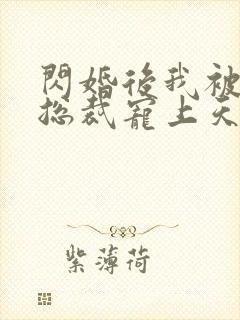 閃婚後我被
總裁寵上天
紫薄荷